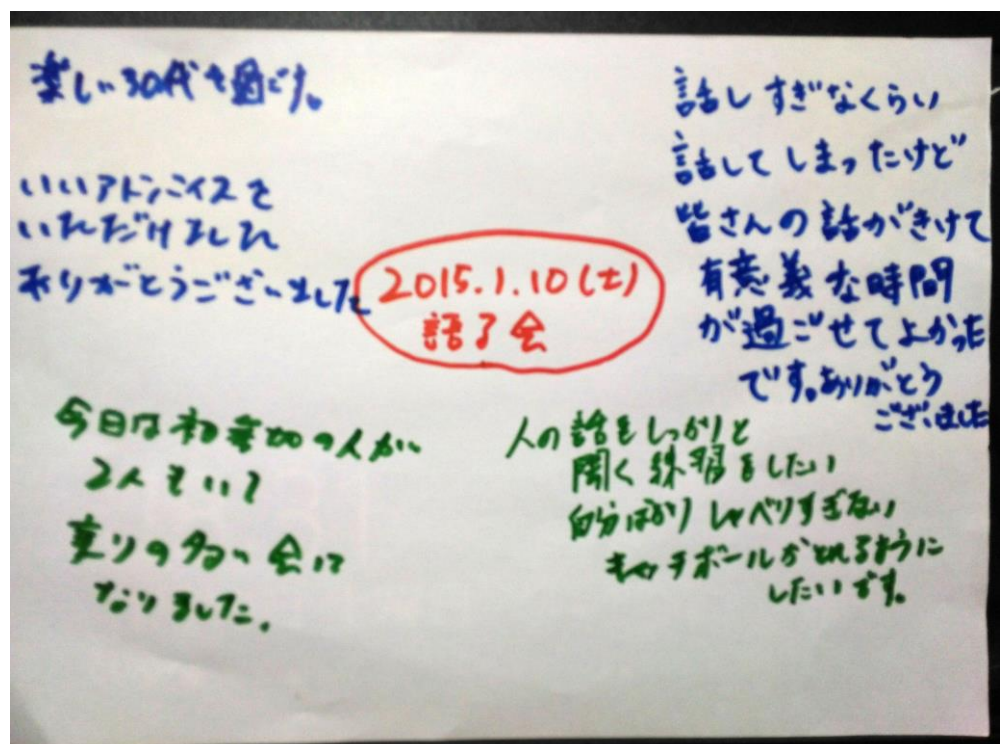 楽しい30代を過ごす。
いいアドバイスを
いただけました
ありがとうございました
2015.1.10(土)
語る会
話しすぎなくらい
話してしまったけど
皆さんの話がきけて
有意義な時間
が過ごせてよかった
です。ありがとう
ございました
今日は初参加の人が
2人もいて
実りの多い会に
なりました。
人の話をしっかりと
聞く練習をしたい
自分ばかりしゃべりすぎない
キャッチボールがとれるように
したいです。